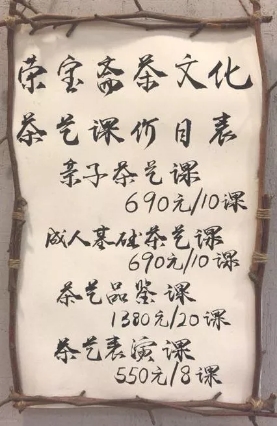 荣宝斋茶文化
茶艺课价目表
亲子茶艺课
690元/10课
成人基础茶艺课
690元/10课
茶艺品鉴课
1380元/20课
茶艺表演课
550元/8课